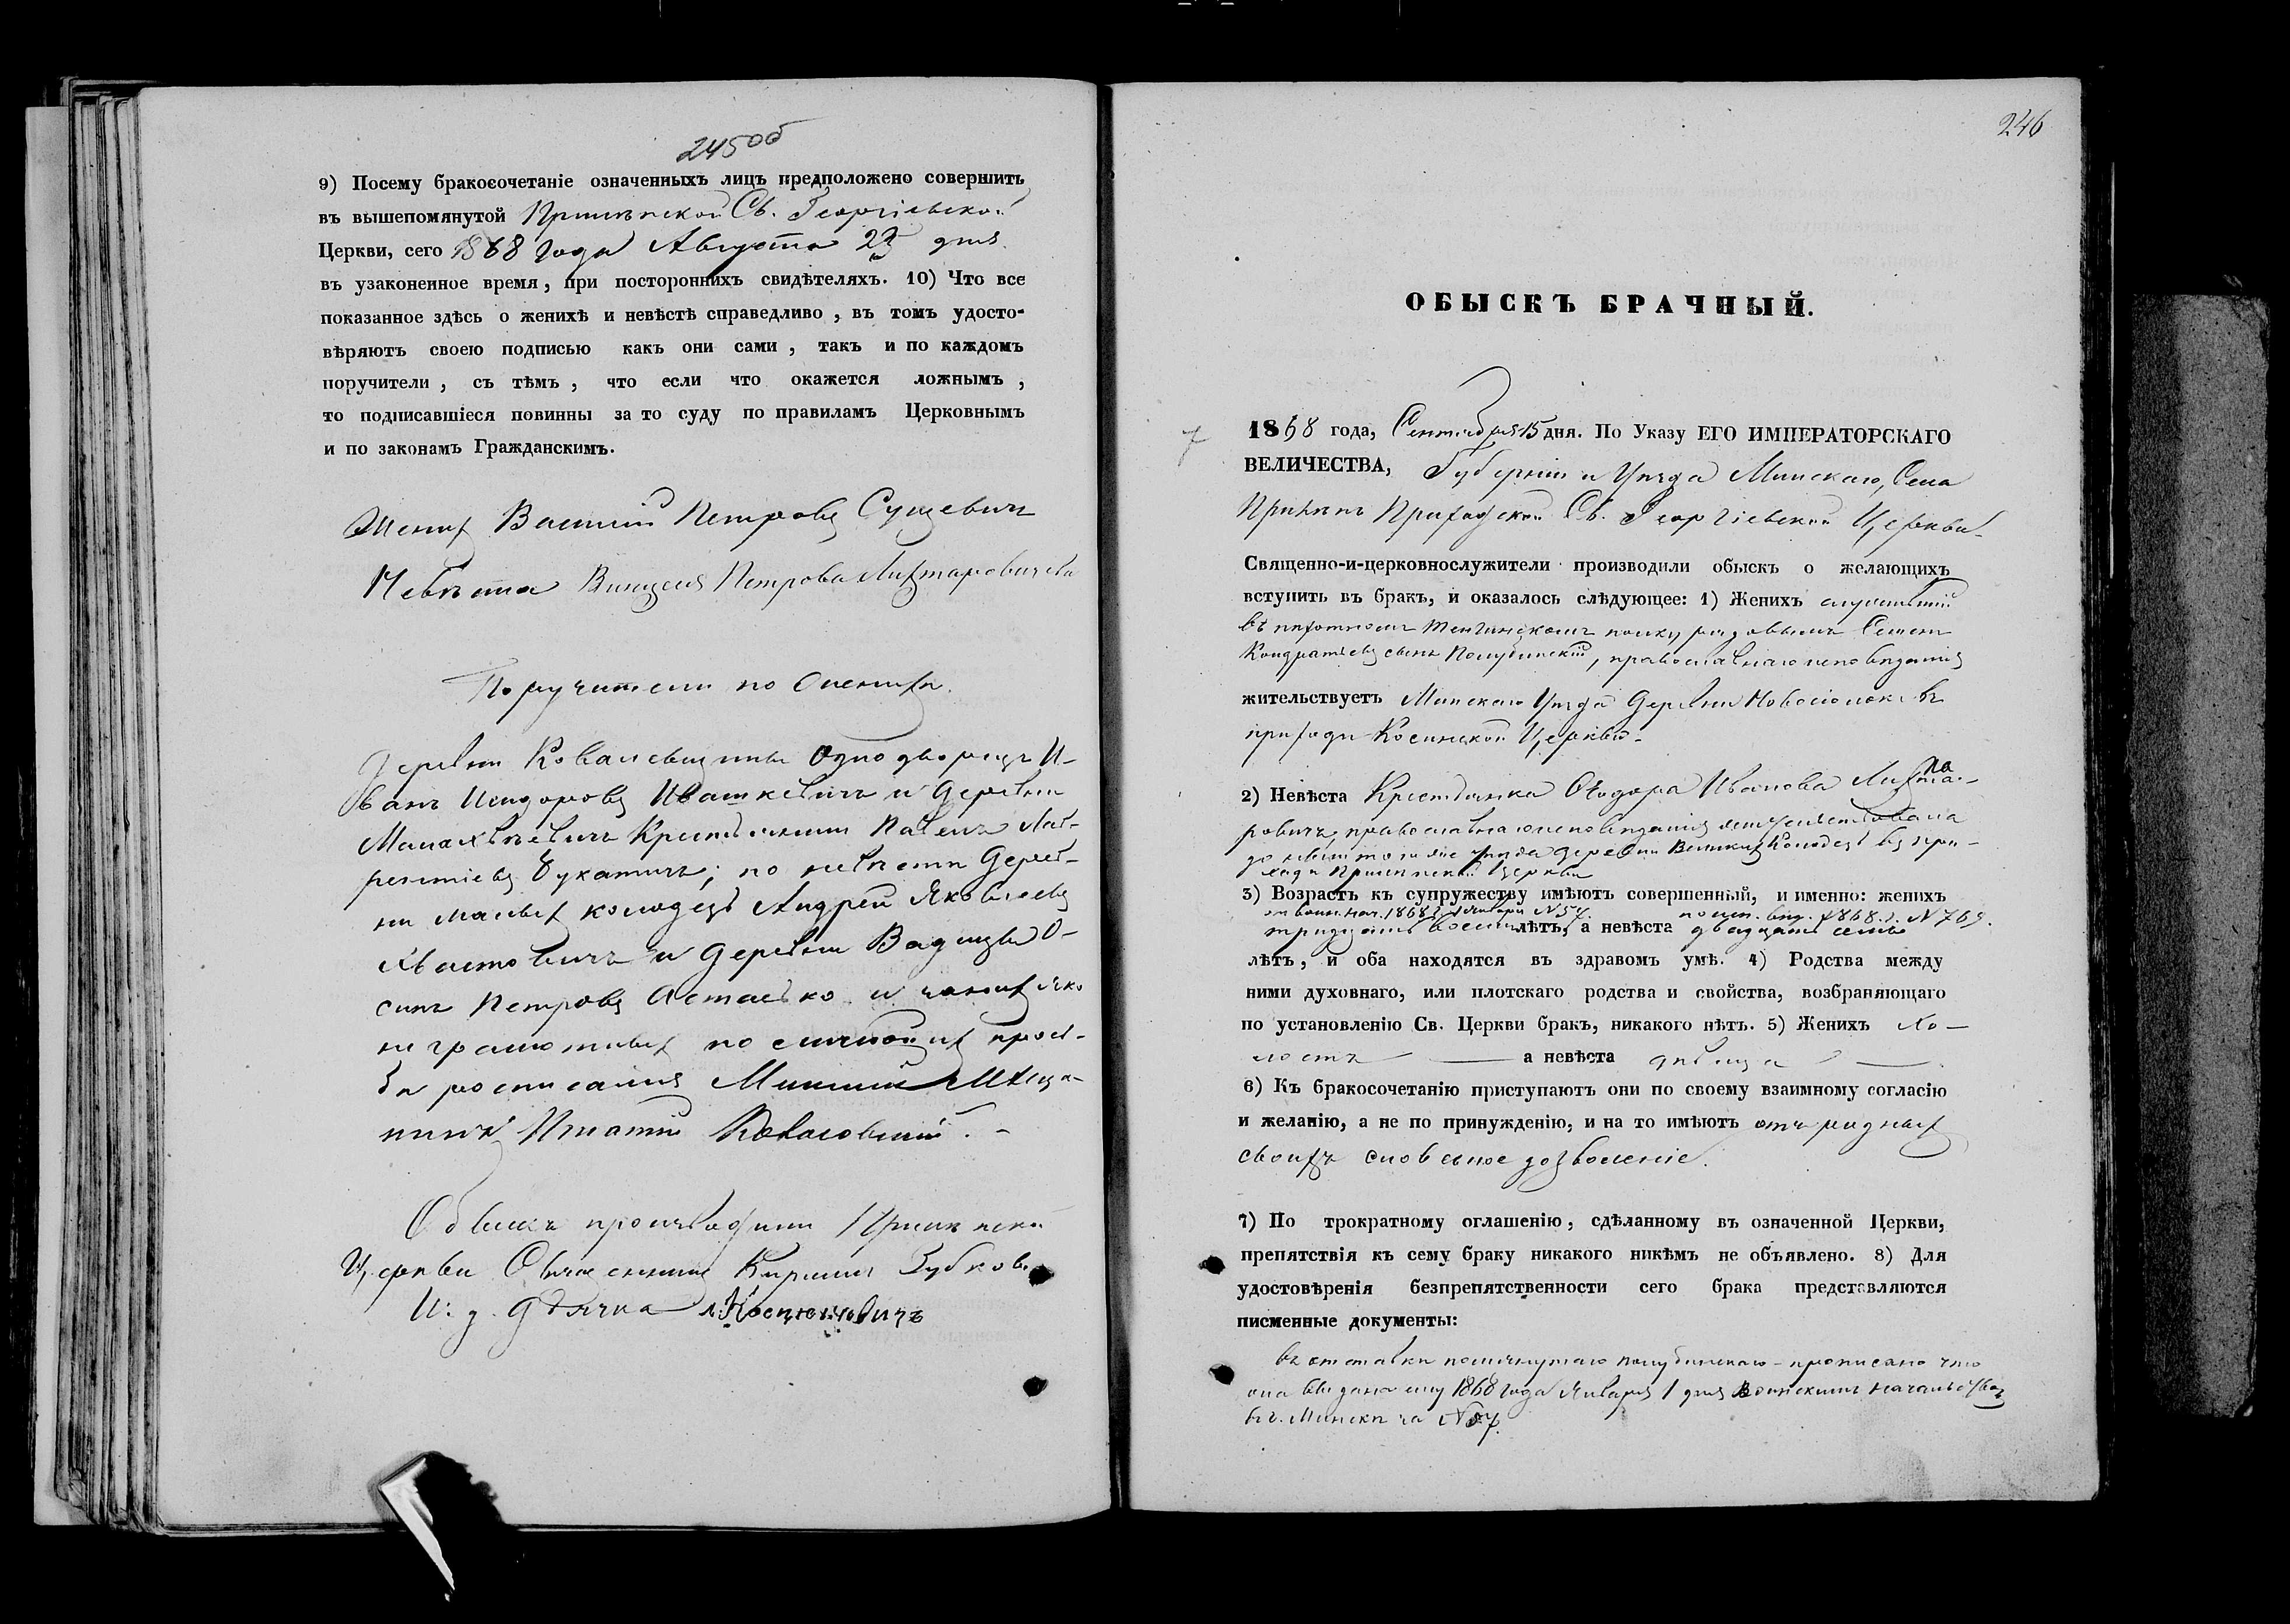 245об
9) Посему бракосочетаніе означенныхъ лицъ предположено совершить
въ вышепомянутой Прилѣпской Св. Георгіевской
Церкви, сего 1868 года Августа 23 дня
въ узаконенное время, при постороннихъ свидѣтеляхъ. 10) Что все
показанное здѣсь о женихѣ и невѣстѣ справедливо, въ томъ удосто-
вѣряютъ своею подписью какъ они сами, такъ и по каждомъ
поручители, съ тѣмъ, что если что окажется ложнымъ,
то подписавшіеся повинны за то суду по правиламъ Церковнымъ
и по законамъ Гражданскимъ.
Женихъ Василій Петровъ Сущевичъ
Невѣста Винцеся Петрова Лихтаровичева
Поручители по Женихѣ.
Деревни Ковалевщины Однодворецъ И-
ванъ Исидоровъ Ивашкевичъ и деревни
Крестьянинъ Павелъ Лав-
рентіевъ Букатичъ; по невѣстѣ Дерев-
ни малыхъ колодезь Андрей Яковлевъ
Хвастовичъ и деревни Вадицы О-
сипъ Петровъ Асташко и
неграмотныхъ по личной ихъ прось-
бѣ росписался Минскій Мѣща-
нинъ Игнатій
Обыскъ производили Прилѣпской
Церкви Священникъ Кирилъ Зубков
И. д. Дьячка
246
ОБЫСКЪ БРАЧНЫЙ.
7
1868 года, Сентября 15 дня. По Указу ЕГО ИМПЕРАТОРСКАГО
ВЕЛИЧЕСТВА, Губерніи и Уѣзда Минскаго, Села
Прилѣпъ Приходской Св. Георгіевской Церкви
Священно-и-церковнослужители производили обыскъ о желающихъ
вступить въ бракъ, и оказалось слѣдующее: 1) Женихъ служившій
въ пѣхотномъ Тенгинскомъ полку рядовымъ Семенъ
Кондратьевъ сынъ Полубинскій, православнаго исповѣданія
жительствуетъ Минскаго Уѣзда Деревни Новоселокъ въ
приходѣ Косинской Церкви
2) Невѣста Крестьянка Ѳеодора Иванова Лихта-
ровичъ, православнаго исповѣданія жительствовала
до нынѣ того же уѣзда деревни Великихъ Колодезь въ при-
ходѣ Прилѣпской Церкви
3) Возрастъ къ супружеству имѣютъ совершенный, и именно: женихъ
1868 г. Января N 57. 1868. г. N 769.
тридцать восемь лѣтъ, а невѣста двадцать семь
лѣтъ, и оба находятся въ здравомъ умѣ. 4) Родства между
ними духовнаго, или плотскаго родства и свойства, возбраняющаго
по установленію Св. Церкви бракъ, никакого нѣтъ. 5) Женихъ хо-
лостъ а невѣста дѣвица
6) Къ бракосочетанію приступаютъ они по своему взаимному согласію
и желанію, а не по принужденію, и на то имѣютъ отъ родныхъ
своихъ словесное дозволеніе.
7) По трократному оглашенію, сдѣланному въ означенной Церкви,
препятствія къ сему браку никакого никѣмъ не объявлено. 8) Для
удостовѣренія безпрепятственности сего брака представляются
писменные документы:
въ отставкѣ помянутаго Полубинскаго - прописано что
она выдана ему 1868 года Января 1 дня Воинскимъ начальствомъ
въ г. Минскѣ за N 57.